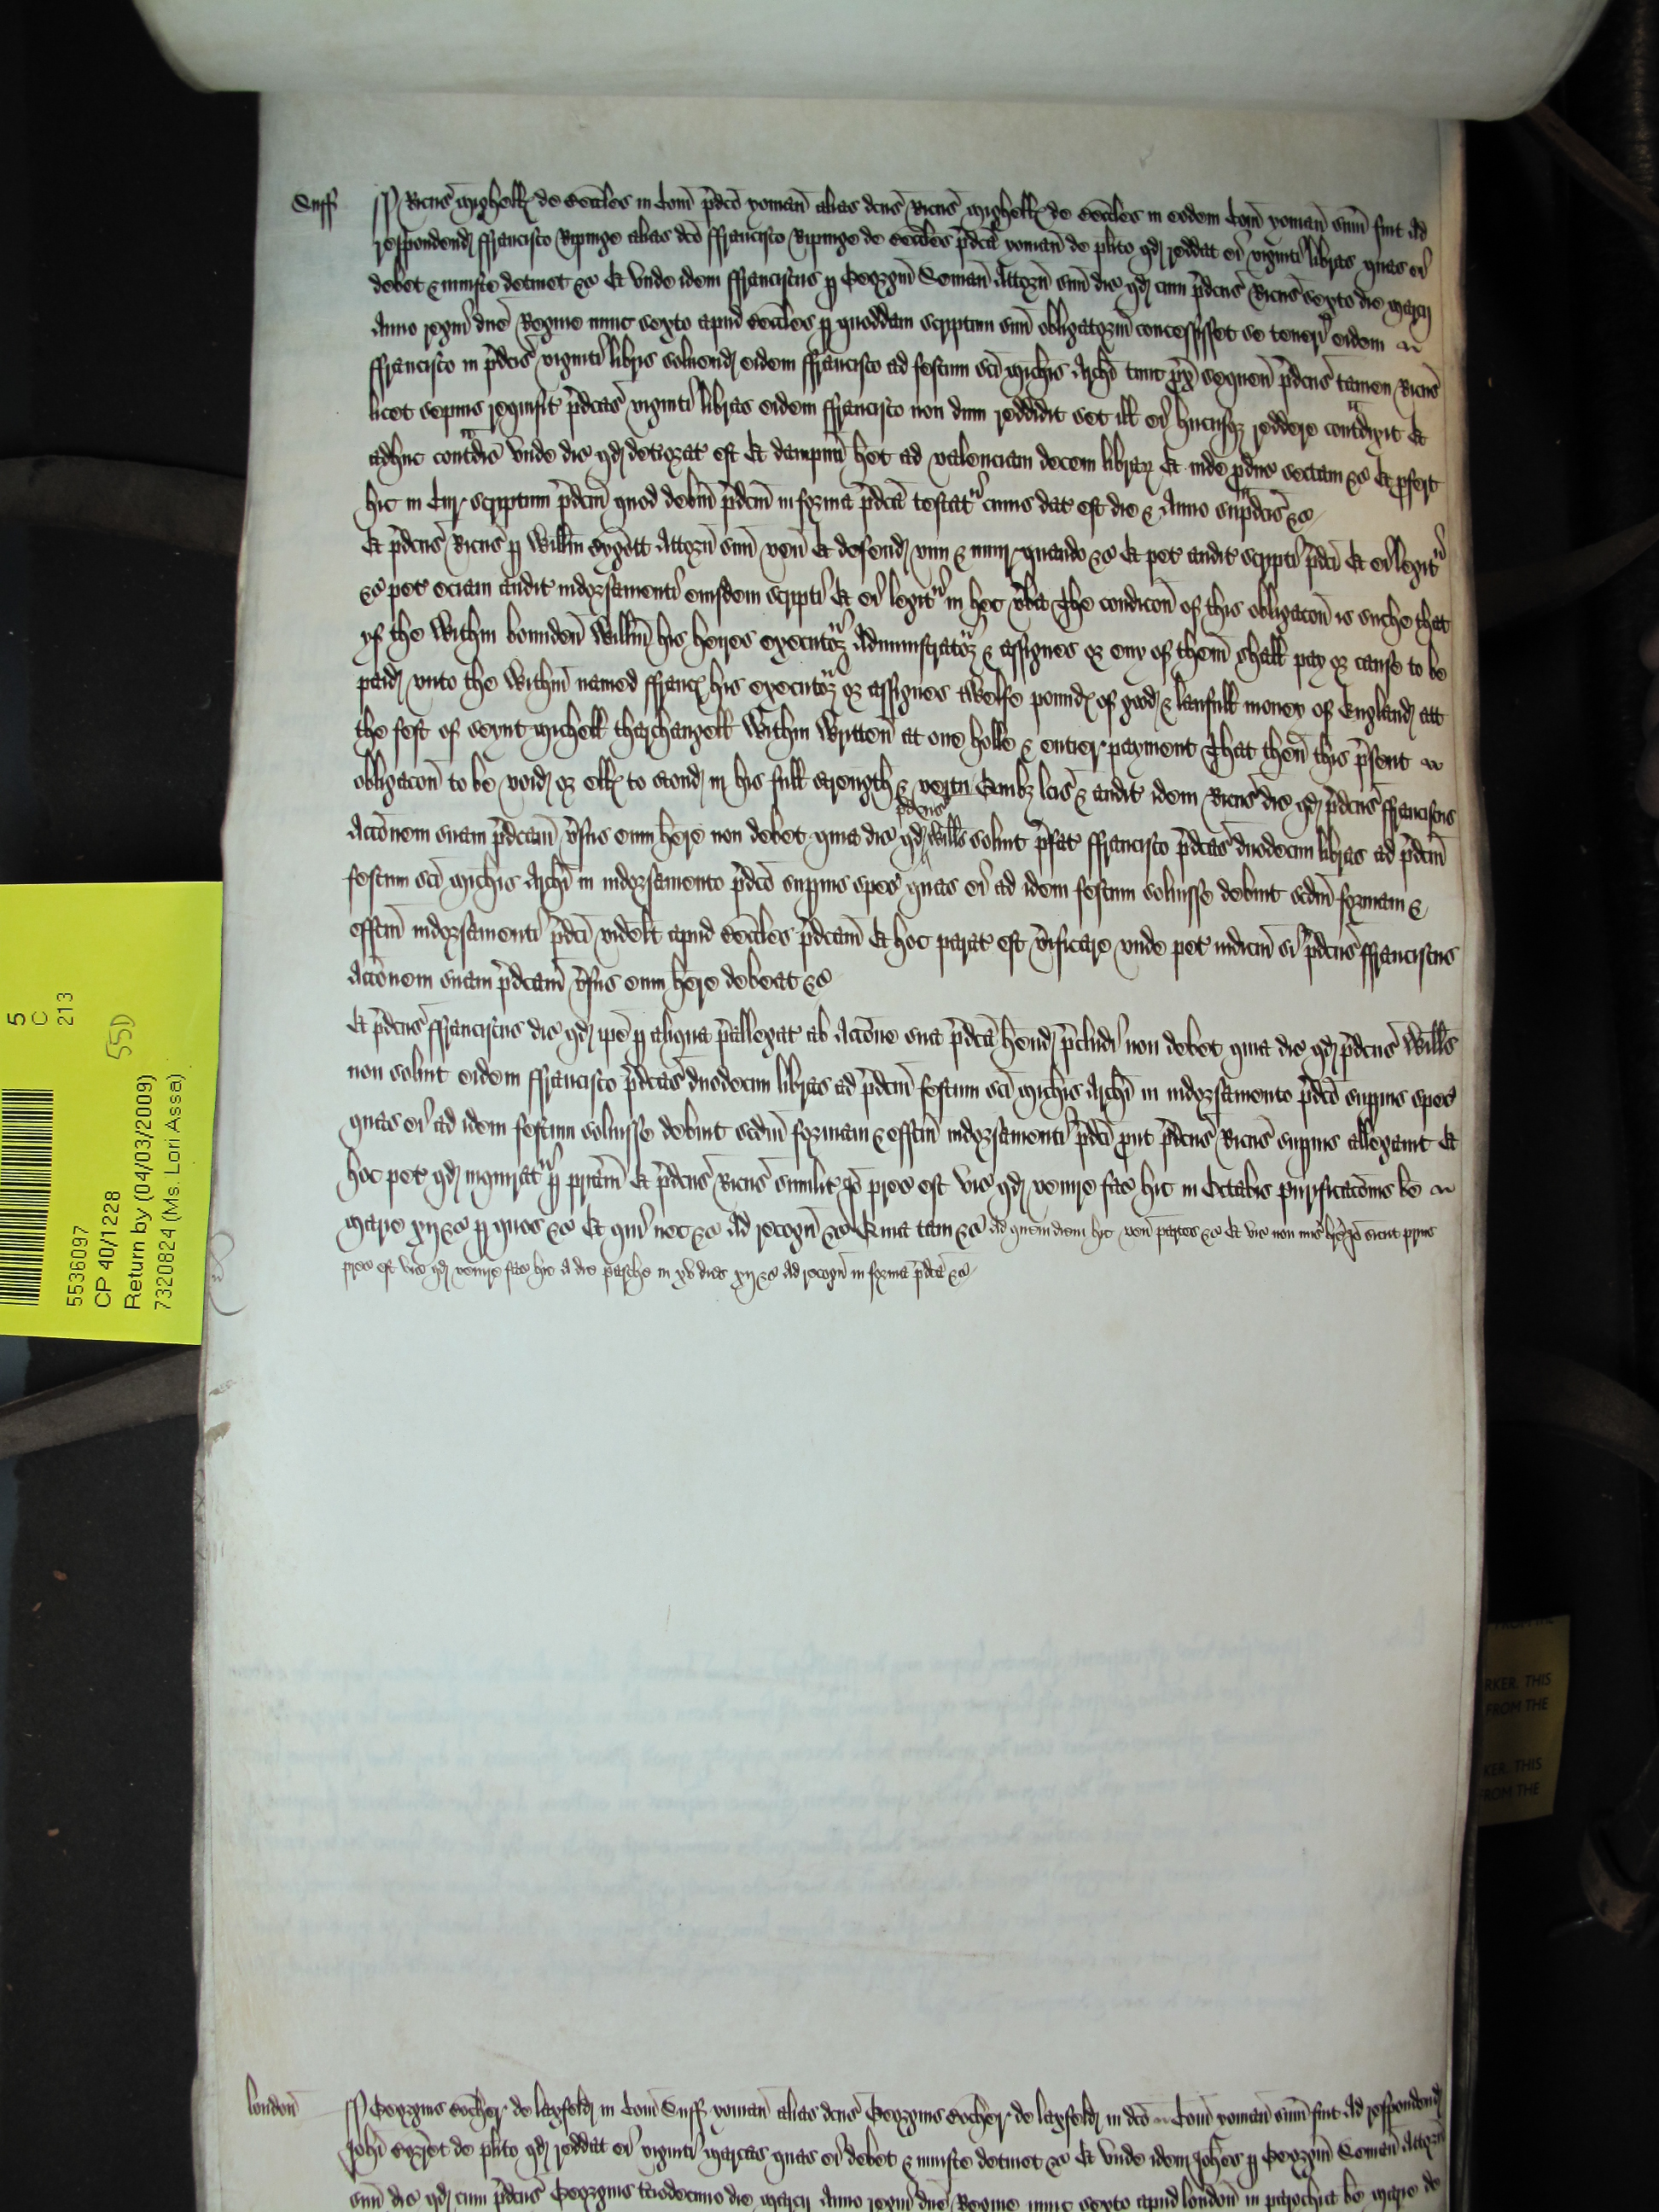 Suff
Ricus Mighell de Beccles in Com pdco yoman alias dcus Ricus Mighell de Beccles in eodem Com yoman sum fuit ad
respondend ffrancisco Ripinge alias dco ffrancisco Ripinge de Beccles pdca yoman de plito qd reddat ei viginti libras quas ei
debet & iniuste detinet &c Et unde idem ffranciscus p Georgium Attorn suu dic qd cum pdcus Ricus sexto die Marcij
Anno regni dne Regine nunc sexto apud Beccles p quoddam scriptum suu obligatorium concessisset se teneri eidem
ffrancisco in pdcis viginti libris solvend eidem ffrancisco ad festum sci Michis Archi tunc prox sequen pdcus tamen Ricus
licet sepius requisit pdcas viginti libras eidem ffrancisco non dum reddidit set ill ei hucusq reddere contradixit Et
adhuc contradic unde dic qd deteriorat est Et dampnu het ad valenciam decem librar Et inde produc sectam &c Et profert
hic in Cur scriptum pdcm quod debm pdcm in forma pdca testat cuius dat est die & Anno supradcis &c
Et pdcus Ricus p Willm Attorn suu ven Et defend vim & iniur quando &c Et pet audit scripti pdci Et ei legit
&c pet eciam audit indorsamenti eiusdem scripti Et ei legit in hec vba The condicon of this obligacon is suche that
yf the within bounden Willm his heyres executor Administrator & assignes or eny of them shall pay or cause to be
paid unto the within named ffranc his executor or assignes twelfe pound of good & laufull money of England att
the fest of seynt Michell tharchangell within written at one holle & entier payment That then this psent
obligacon to be void or ell to stond in his full strength & vertu Quibz lcis & audit idem Ricus dic qd pdcus ffranciscus
Accionem suam pdcam vsus eum here non debet quia dic qd pdcus Wills soluit pfat ffrancisco pdcas duodecim libras ad pdcm
festum sci Michis Archi in indorsamento pdco supius spec quas ei ad idem festum soluisse debuit scdm formam &
effcm indorsamenti pdci videlt apud Beccles pdcam Et hoc parat est vificare unde pet iudicm si pdcus ffranciscus
Accionem suam pdcam vsus eum here debeat &c
Et pdcus ffranciscus dic qd ipe p aliqua pallegat ab Accione sua pdca hend pcludi non debet quia dic qd pdcus Wills
non soluit eidem ffrancisco pdcas duodecim libras ad pdcm festum sci Michis Archi in indorsamento pdco supius spec
quas ei ad idem festum soluisse debuit scdm formam & effcm indorsamenti pdci put pdcus Ricus supius allegauit Et
hoc pet qd inquirat p priam Et pdcus Ricus similit Io prec est vic qd venire fac hic in Octabis purificacionis be
Marie xij &c p quos &c Et qui nec &c Ad recogn &c Quia tam &c Ad quem diem hic ven partes &c Et vic non mis bre Io sicut prius
prec est vic qd venire fac hic a die pasche in xv dies xij &c Ad recogn in forma pdca &c
London
Georgius de laxfeld in Com Suff yoman alias dcus Georgius de laxfeld in dco Com yoman sum fuit ad respondend
Johi de plito qd reddat ei viginti marcas quas ei debet & iniuste detinet &c Et unde idem Johes p Georgium Attorn
suu dic qd cum pdcus Georgius die Marcij Anno regni dne Regine nunc sexto apud london in parochia be Marie de
5
C
213
55D
5536097
CP 40/1228
Return by (04/03/2009)
7320824 (Ms. Lori Assa)
RKER. THIS
FROM THE
KER. THIS
FROM THE